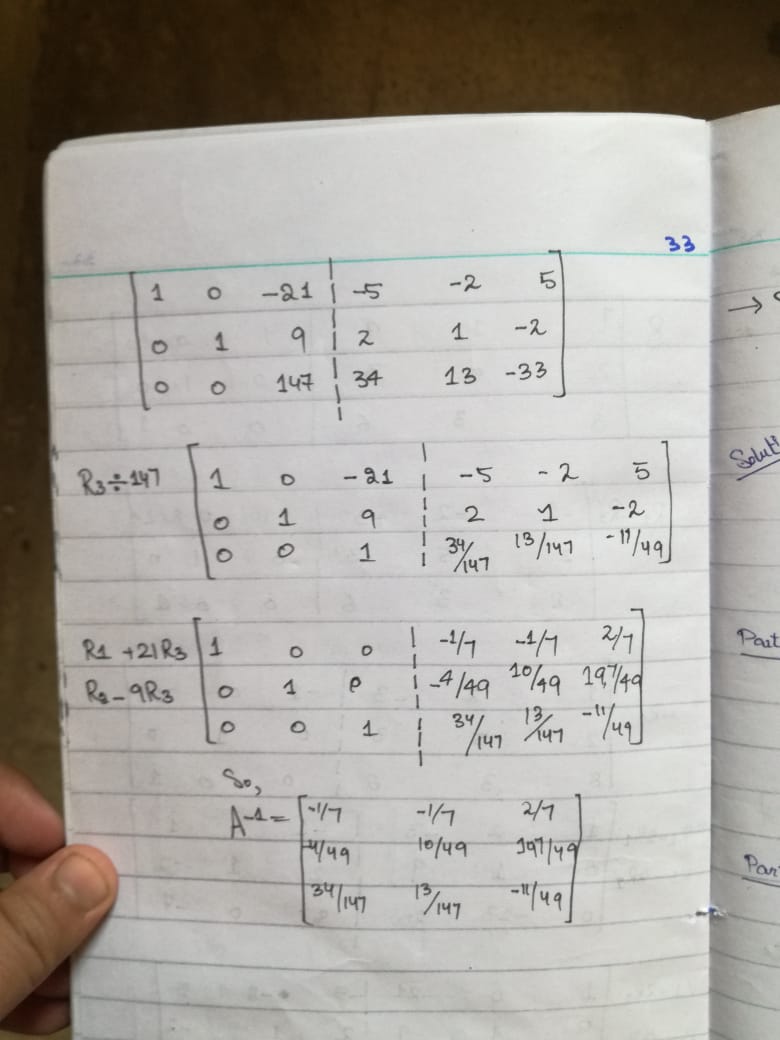 33
1 0 -21 | -5 -2 5
0 1 9 | 2 1 -2
0 0 147 | 34 13 -33
R3÷147 1 0 -21 | -5 -2 5
0 1 9 | 2 1 -2
0 0 1 | 34/147 13/147 -11/49
R1 +21R3 1 0 0 | -1/7 -1/7 2/7
R2 - 9R3 0 1 0 | -4/49 10/49 197/49
0 0 1 | 34/147 13/147 -11/49
So,
A-1 = -1/7 -1/7 2/7
-4/49 10/49 197/49
34/147 13/147 -11/49
→